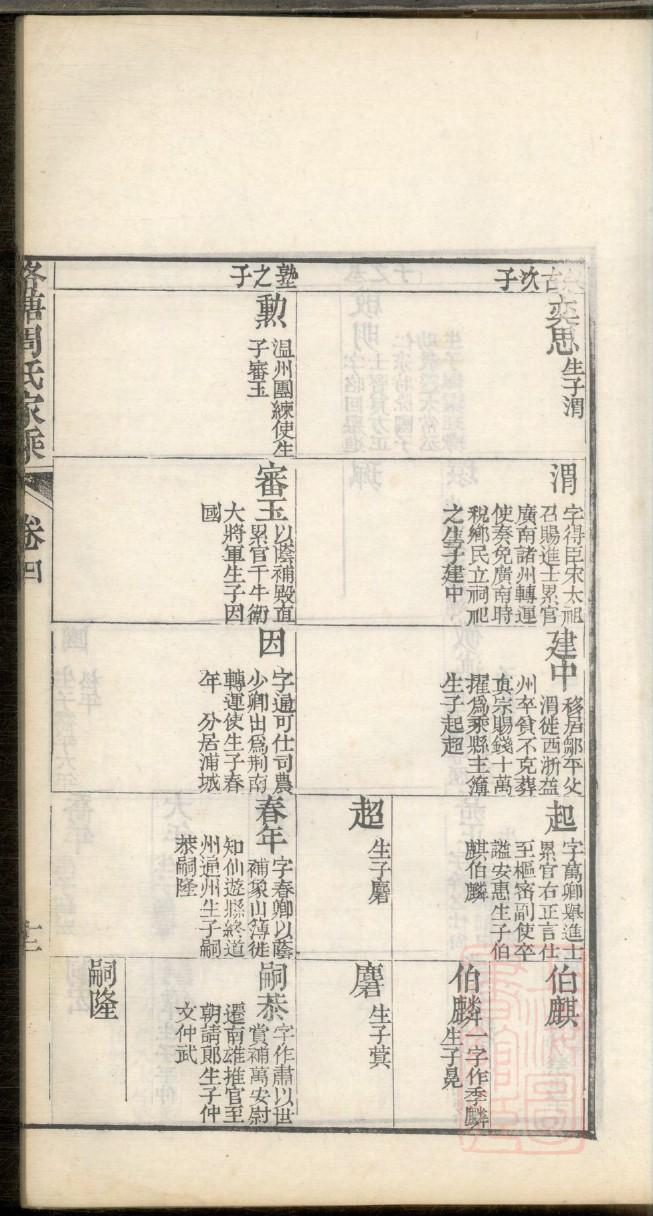 次子
奕思
生子渭
渭
字得臣宋太祖
召賜進士累官
廣南諸州轉運
使奏免廣南時
稅鄉民立祠祀
之生子建中
建中
移居鄒平父
渭徙西浙益
州卒貧不克葬
真宗賜錢十萬
擢爲乘縣主簿
生子起超
起
字萬卿舉進士
累官右正言仕
至樞密副使卒
謚安惠生子伯
麒伯麟
伯麒
伯麟
字作李麟
生子晃
超
生子磨
磨
生子蓂
塾之子
勳
溫州團練使生
子審玉
審玉
以蔭補殿直
累官千牛衛
大將軍生子因
國
因
字通可仕司農
少卿出爲荆南
轉運使生子春
年 分居浦城
春年
字春卿以蔭
補象山簿徙
知仙遊縣終道
州通州生子嗣
恭嗣隆
嗣恭
字作肅以世
賞補萬安尉
遷南雄推官至
朝請郎生子仲
文仲武
嗣隆
周氏家乘
卷四